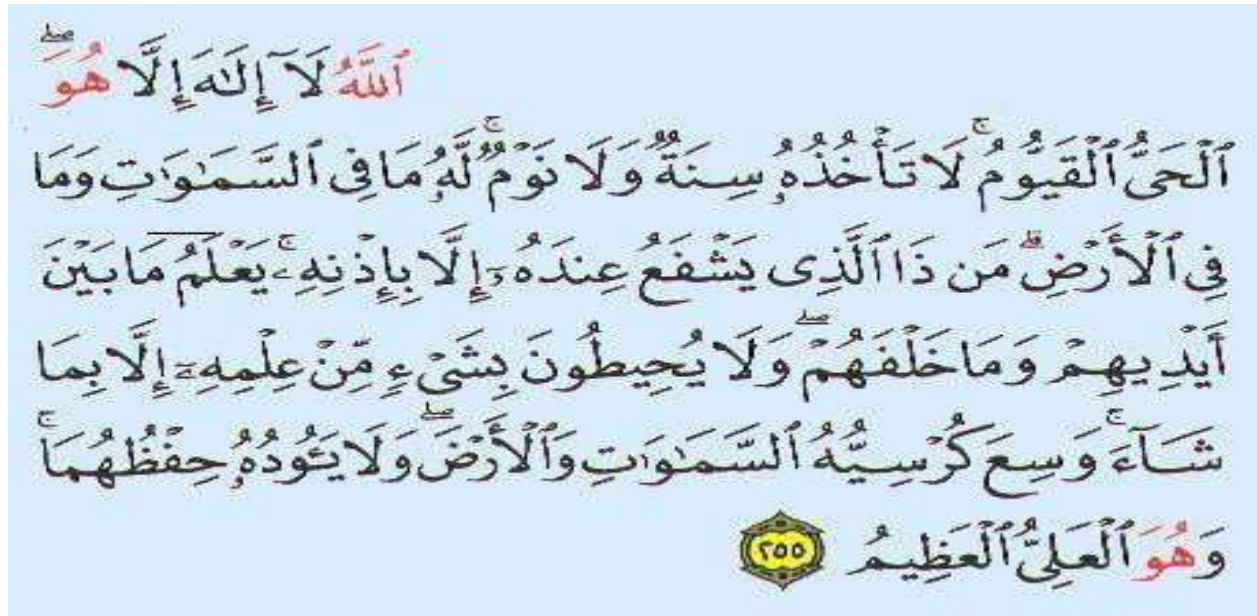 ٱللَّهُ لَآ إِلَـٰهَ إِلَّا هُوَ ۖ
ٱلْحَىُّ ٱلْقَيُّومُ ۚ لَا تَأْخُذُهُۥ سِنَةٌ وَلَا نَوْمٌ ۚ لَّهُۥ مَا فِى ٱلسَّمَـٰوَٰتِ وَمَا
فِى ٱلْأَرْضِ ۗ مَن ذَا ٱلَّذِى يَشْفَعُ عِندَهُۥٓ إِلَّا بِإِذْنِهِۦ ۚ يَعْلَمُ مَا بَيْنَ
أَيْدِيهِمْ وَمَا خَلْفَهُمْ ۖ وَلَا يُحِيطُونَ بِشَىْءٍ مِّنْ عِلْمِهِۦٓ إِلَّا بِمَا
شَآءَ ۚ وَسِعَ كُرْسِيُّهُ ٱلسَّمَـٰوَٰتِ وَٱلْأَرْضَ ۖ وَلَا يَـُٔودُهُۥ حِفْظُهُمَا ۚ
وَهُوَ ٱلْعَلِىُّ ٱلْعَظِيمُ ٢٥٥